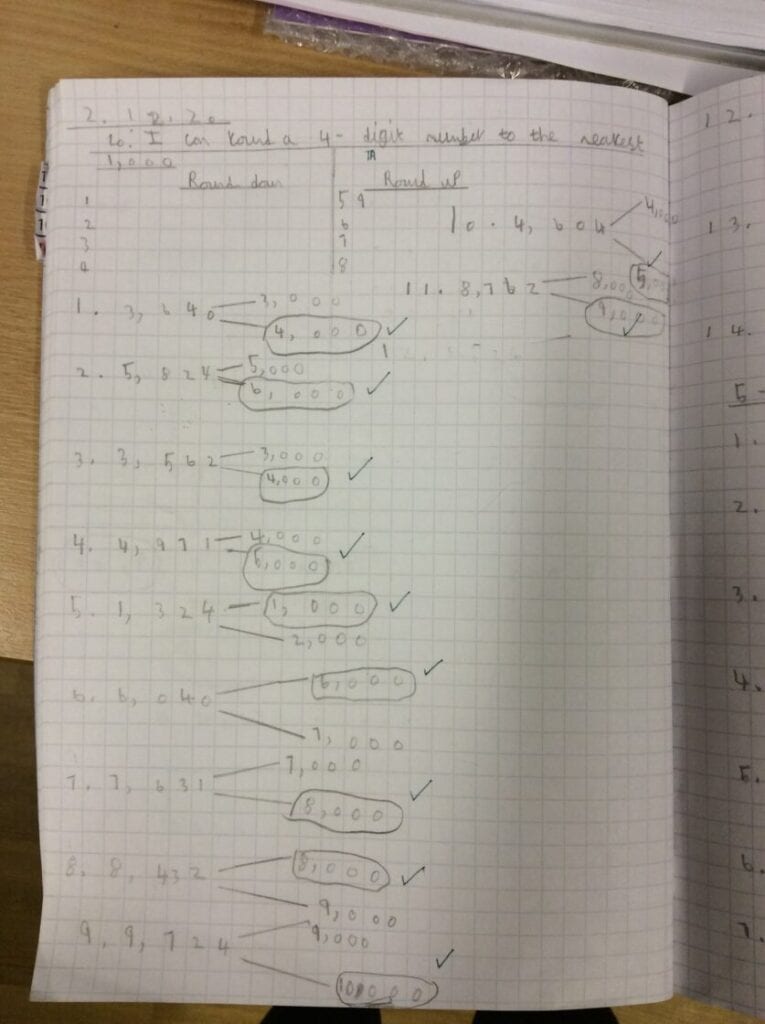 2. 12. 20
LO: I can round a 4-digit number to the nearest
1,000
TA
Round down
Round up
1
2
3
4
5 9
6
7
8
1. 3,640
3,000
4,000
2. 5,824
5,000
6,000
3. 3,562
3,000
4,000
4. 4,971
4,000
5,000
5. 1,324
1,000
2,000
6. 6,040
6,000
7,000
7. 7,631
7,000
8,000
8. 8,432
8,000
9,000
9. 9,724
9,000
10,000
10. 4,604
4,000
5,00
11. 8,762
8,000
9,000
12.
13.
14.
5-
1.
2.
3.
4.
5.
6.
7.